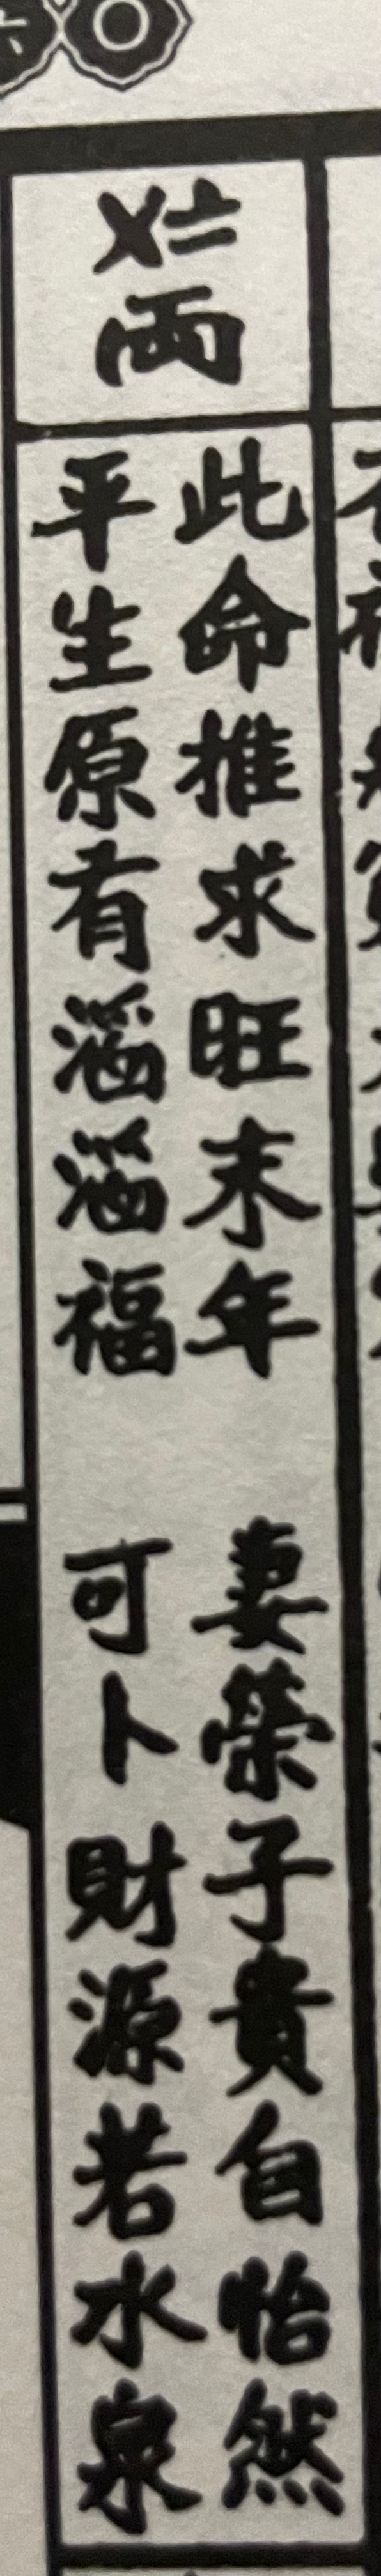 〇
〤〧
兩
此命推求旺末年　妻榮子貴自怡然
平生原有滔滔福　可卜財源若水泉